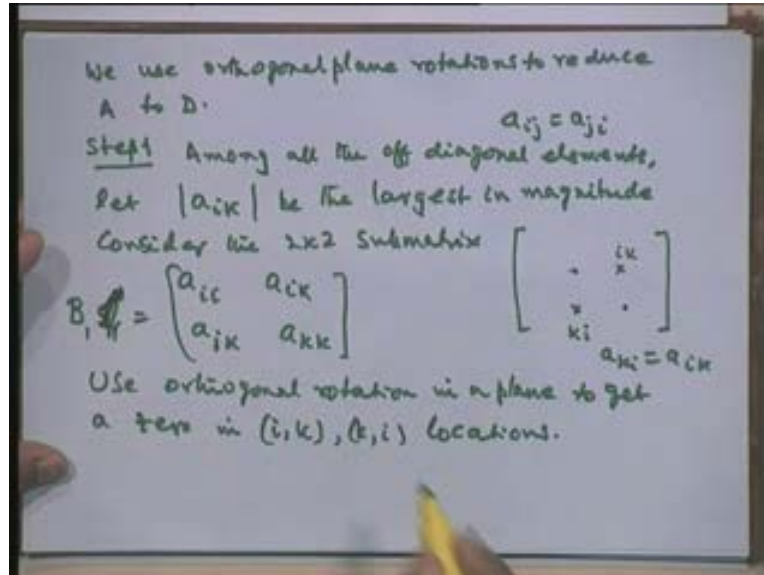 We use orthogonal plane rotations to reduce
A to D.
a_ij = a_ji
Step1 Among all the off diagonal elements,
let |a_ik| be the largest in magnitude
Consider the 2x2 submatrix
B_1 = [a_ii a_ik
a_ik a_kk]
[ . ik x
x .
ki ]
a_ki = a_ik
Use orthogonal rotation in a plane to get
a zero in (i,k), (k,i) locations.